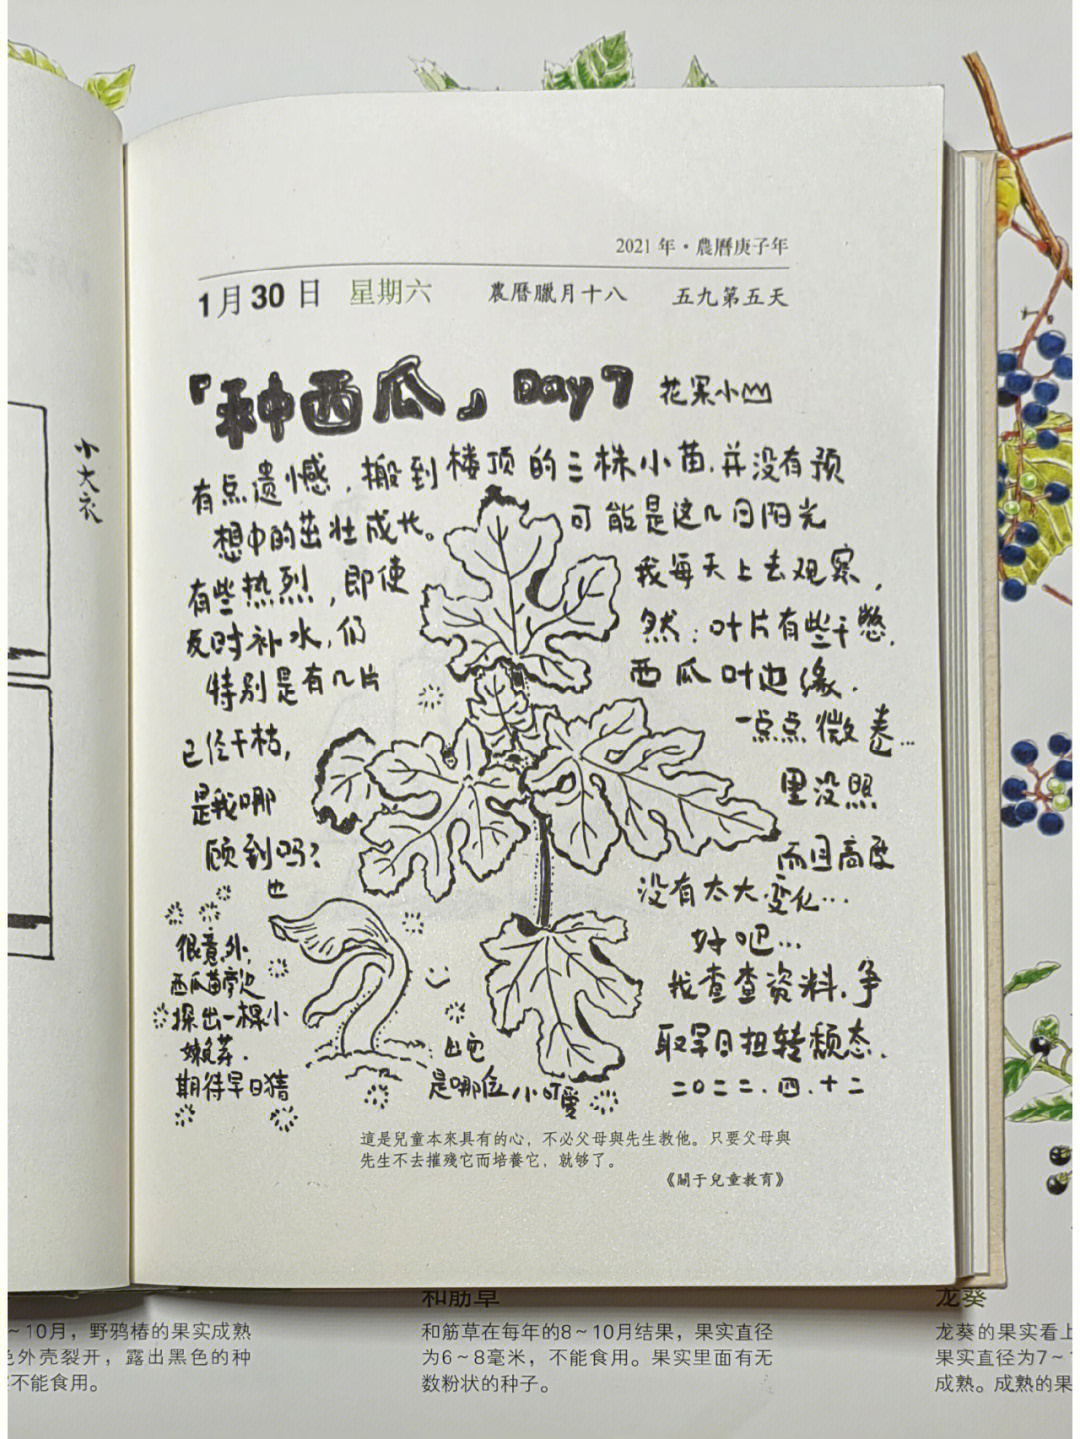 2021 年·農曆庚子年
1月30日 星期六 農曆臘月十八 五九第五天
「种西瓜」Day 7 花果小山
有点遗憾，搬到楼顶的三株小苗，并没有预
想中的茁壮成长。可能是这几日阳光
有些热烈，即使我每天上去观察，
及时补水，仍然，叶片有些干憋，
特别是有几片西瓜叶边缘，
已经干枯，一点点微卷…
是我哪里没照
顾到吗？而且高度
也没有太大变化…
好吧…
我查查资料，争
取早日扭转颓态．
二〇二二．四．十二
很意外，
西瓜苗旁边
探出一棵小
嫩芽．
期待早日猜出它
是哪位小可愛
這是兒童本來具有的心，不必父母與先生教他。只要父母與
先生不去摧殘它而培養它，就够了。
《關于兒童教育》
小大衣
~10月，野鸦椿的果实成熟
色外壳裂开，露出黑色的种
不能食用。
和筋草
和筋草在每年的8~10月结果，果实直径
为6~8毫米，不能食用。果实里面有无
数粉状的种子。
龙葵
龙葵的果实看上
果实直径为7~
成熟。成熟的果